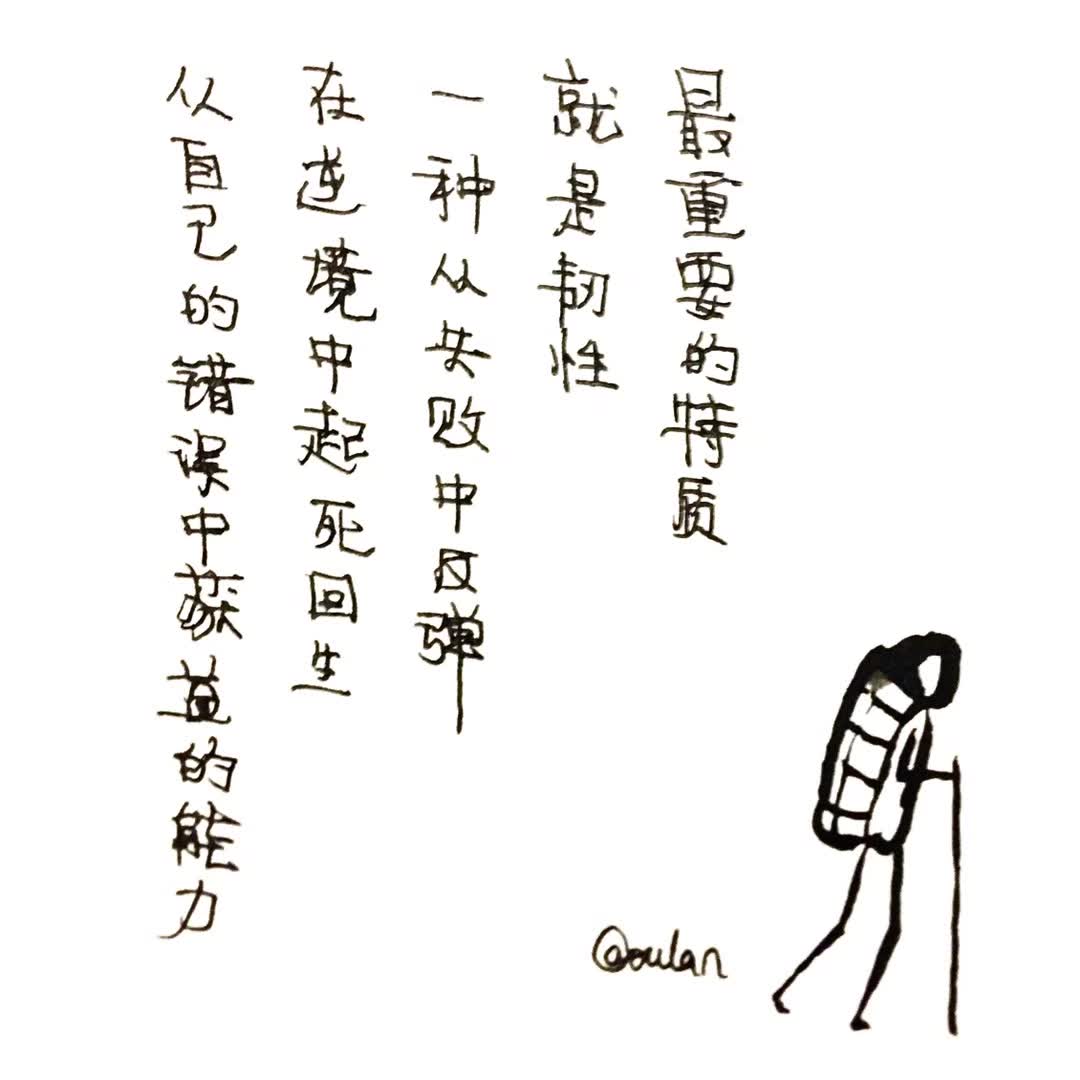 最重要的特质
就是韧性
一种从失败中反弹
在逆境中起死回生
从自己的错误中获益的能力
@oulan